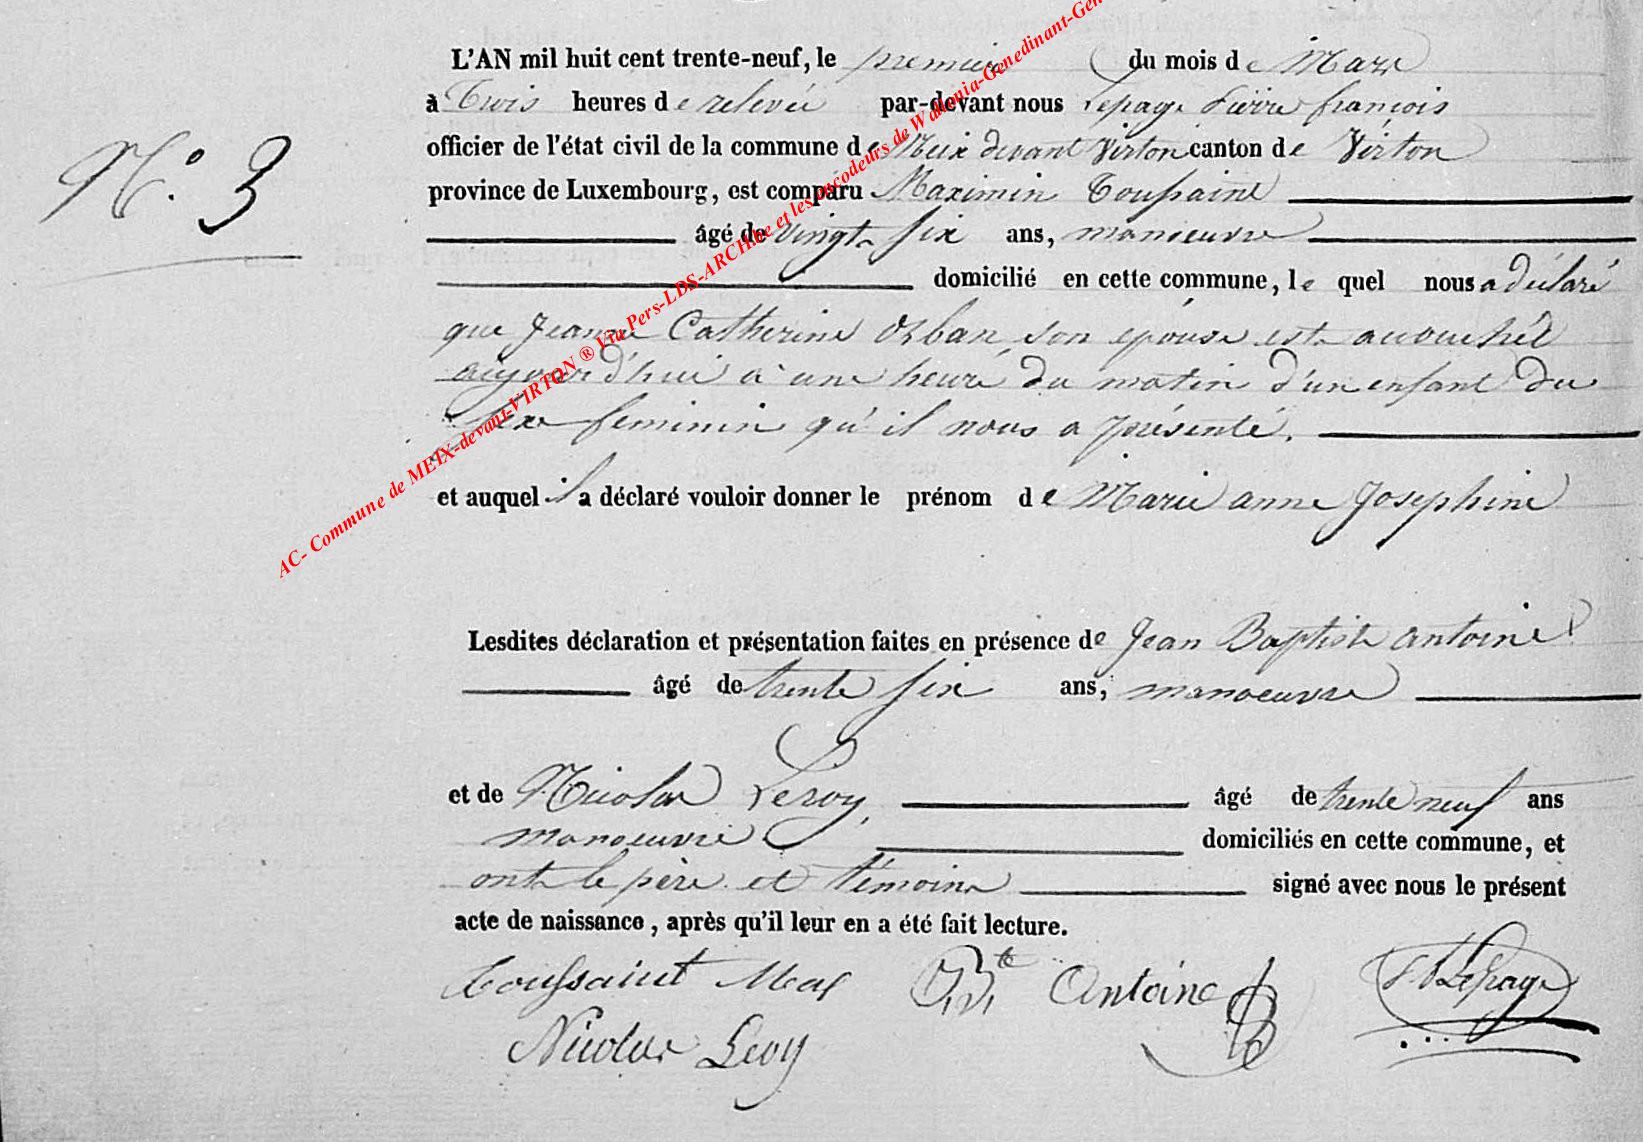 L'AN mil huit cent trente-neuf, le premier du mois de Mars
à trois heures de relevée par-devant nous Lepage Pierre françois
officier de l'état civil de la commune de Meix devant Virton canton de Virton
N.° 3
province de Luxembourg, est comparu Maximin Toussaint
âgé de vingt six ans, manoeuvre
domicilié en cette commune, le quel nous a déclaré
que Jeanne Catherine Orban, son epouse est accouchée
aujourd'hui à une heure du matin d'un enfant du
sexe feminin qu'il nous a présenté.
et auquel il a déclaré vouloir donner le prénom de Marie anne Josephine
Lesdites déclaration et présentation faites en présence de Jean Baptiste antoine
âgé de trente six ans, manoeuvre
et de Nicolas Leroy, âgé de trente neuf ans
manoeuvre domiciliés en cette commune, et
ont le père et témoins signé avec nous le présent
acte de naissance, après qu'il leur en a été fait lecture.
Toussaint Max J,B,te Antoine Lepage
Nicolas Leroy
AC- Commune de MEIX-devant-VIRTON ® Via Pers-LDS-ARCHbe et les encodeurs de Wallonia-Genedinant-Gen